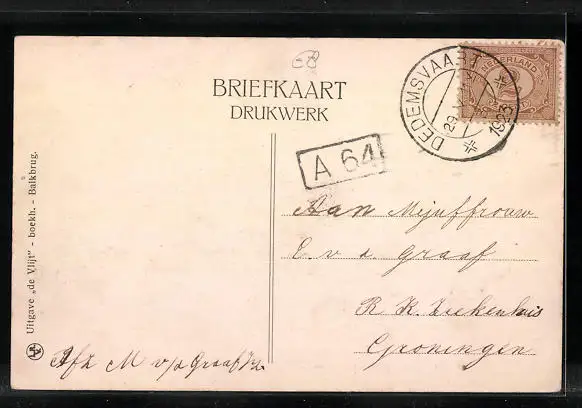 BRIEFKAART
DRUKWERK
DEDEMSVAART
1923
NEDERLAND
A 64
Aan Mejuffrouw
E. v. d. Graaf
R. K. Ziekenhuis
Groningen
Afz M v/d Graaf
Uitgave „de Vlijt" - boekh. - Balkbrug.